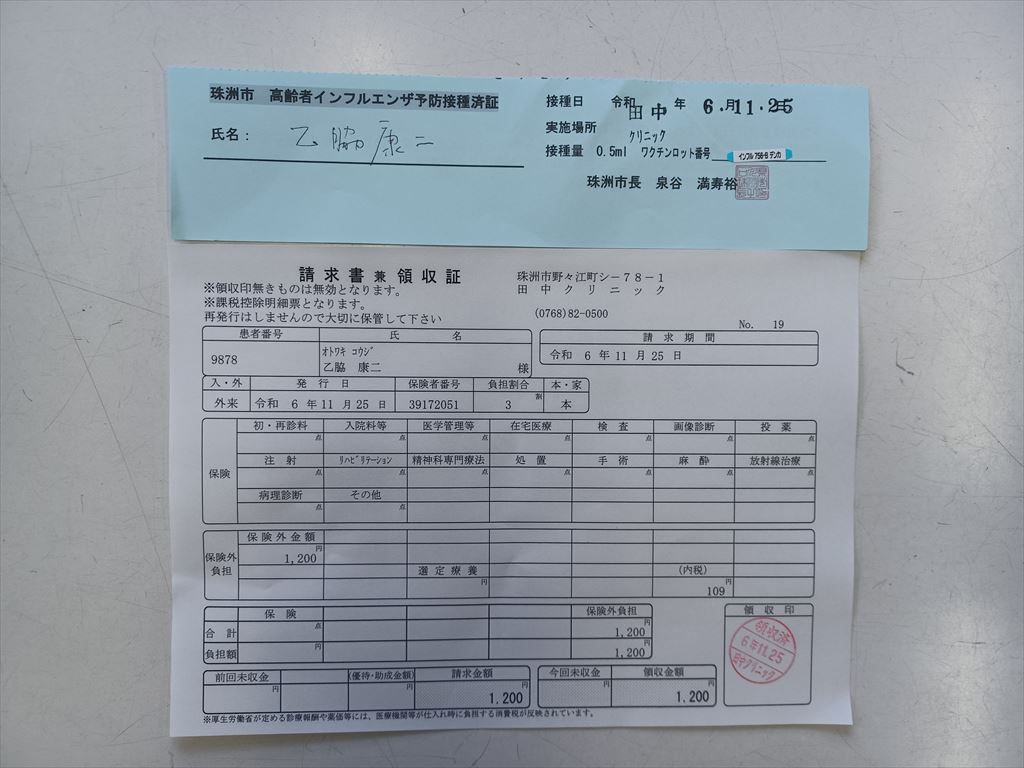 珠洲市 高齢者インフルエンザ予防接種済証
氏名： 乙脇康二
接種日 令和 年 6.月11.2日5
実施場所 田中クリニック
接種量 0.5ml ワクチンロット番号 インフル 756-B デンカ
珠洲市長 泉谷 満寿裕
請求書兼領収証
※領収印無きものは無効となります。
※課税控除明細票となります。
再発行はしませんので大切に保管して下さい
珠洲市野々江町シ－７８－１
田中クリニック
(0768)82-0500
No. 19
患者番号 氏 名
9878
オトワキ コウジ
乙脇 康二 様
請求期間
令和 6 年 11 月 25 日
入・外 発行日 保険者番号 負担割合 本・家
外来 令和 6 年 11 月 25 日 39172051 3 割 本
保険
初・再診料 入院料等 医学管理等 在宅医療 検査 画像診断 投薬
点 点 点 点 点 点 点
注射 リハビリテーション 精神科専門療法 処置 手術 麻酔 放射線治療
点 点 点 点 点 点 点
病理診断 その他
点 点
保険外負担
保険外金額
円
1,200
選定療養 (内税)
円 円
109
保険 保険外負担
合計 点 円
1,200
負担額 円 円
1,200
前回未収金 (優待・助成金額) 請求金額
円 円 円
1,200
今回未収金 領収金額
円 円
1,200
領収印
領収済
6年11.25
田中クリニック
※厚生労働省が定める診療報酬や薬価等には、医療機関等が仕入れ時に負担する消費税が反映されています。